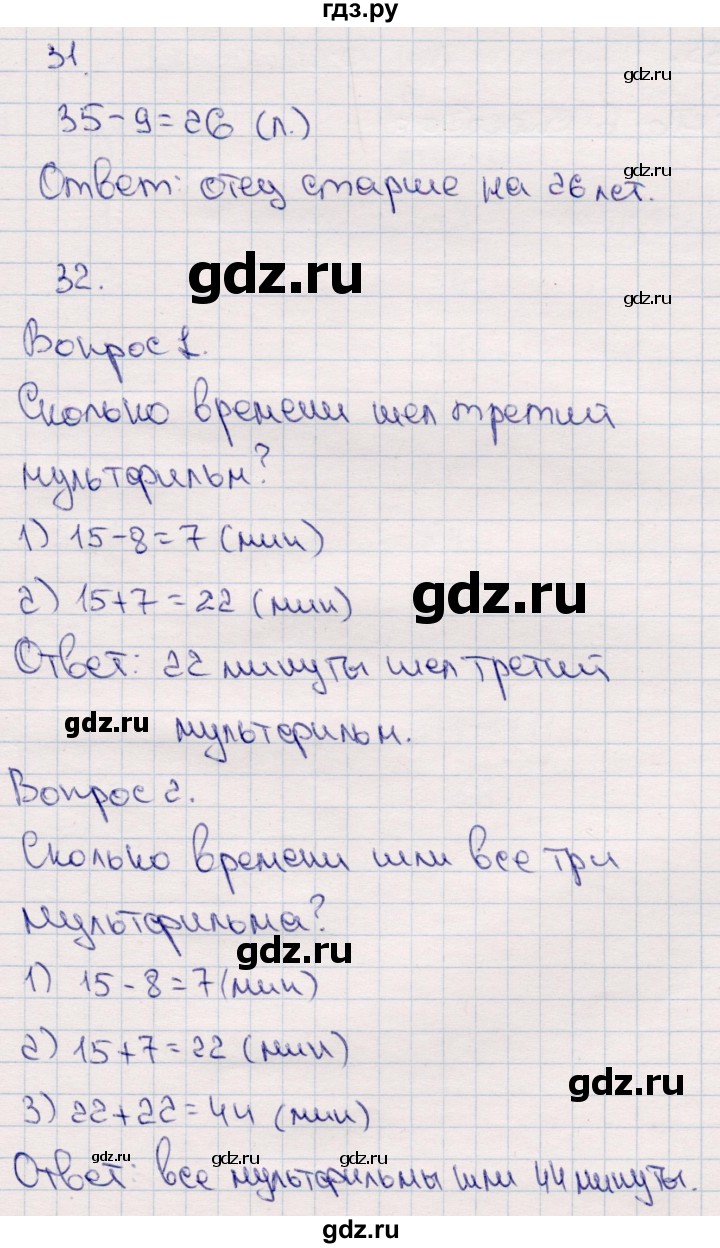 гдз.ру
31.
gdz.ru
35-9=26 (л.)
gdz.ru
Ответ: отец старше на 26 лет.
32.
gdz.ru
gdz.ru
Вопрос 1.
Сколько времени шел третий
мультфильм?
1) 15-8=7 (мин)
2) 15+7=22 (мин)
gdz.ru
Ответ: 22 минуты шел третий
gdz.ru
мультфильм.
Вопрос 2.
Сколько времени шли все три
мультфильма?
gdz.ru
1) 15-8=7(мин)
2) 15+7=22 (мин)
gdz.ru
3) 22+22=44 (мин)
gdz.ru gdz.ru gdz.ru
Ответ: все мультфильмы шли 44 минуты.
gdz.ru